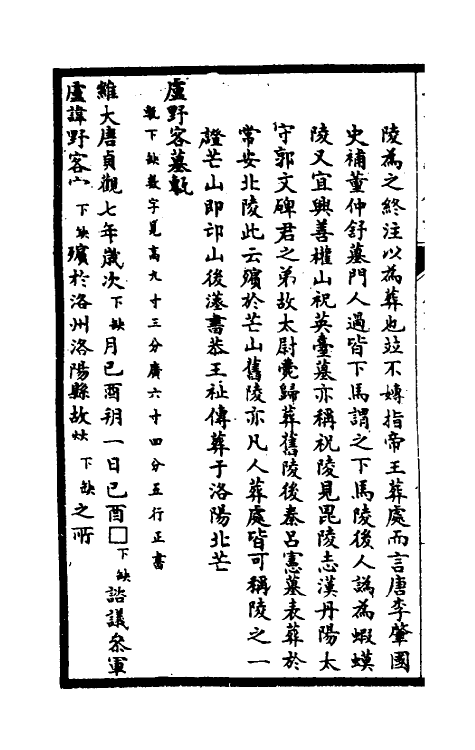 陵為之終注以為葬也竝不專指帝王葬處而言唐李肇國
史補董仲舒墓門人過皆下馬謂之下馬陵後人譌為蝦蟆
陵又宜興善權山祝英臺墓亦稱祝陵見毘陵志漢丹陽太
守郭文碑君之弟故太尉薨歸葬舊陵後秦呂憲墓表葬於
常安北陵此云殯於芒山舊陵亦凡人葬處皆可稱陵之一
證芒山即邙山後漢書恭王祉傳葬于洛陽北芒
盧野客墓
下缺數字見高九寸三分廣六寸四分五行正書
維大唐貞觀七年歲次下缺月己酉朔一日己酉□下缺諮議參軍
盧諱野客宀下缺殯於洛州洛陽縣故下缺之所